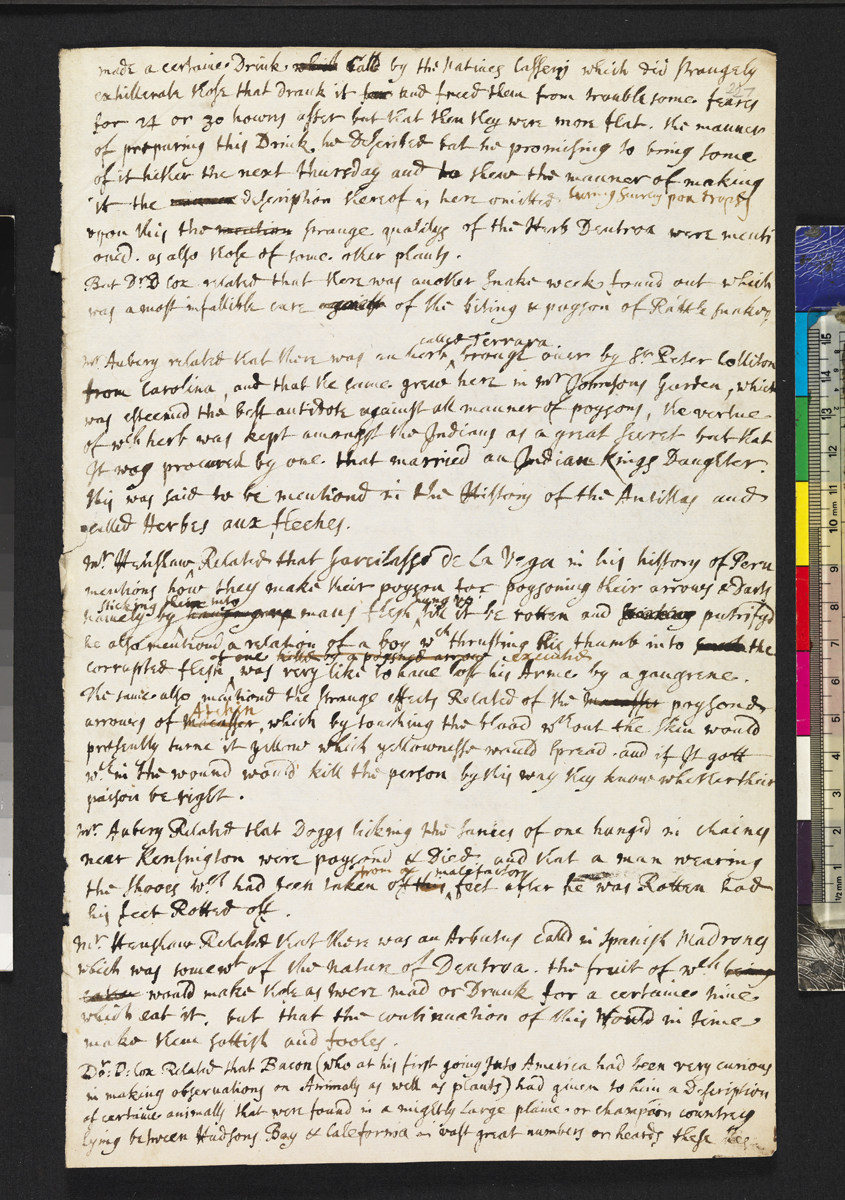 made a certaine Drink which calld by the Natives Casseny which did strangely
exhillerate those that drank it and freed them from troublesome feares
287
for 24 or 30 howrs after but that then they were more flat. the manner
of preparing this Drink he described but he promising to bring some
of it hither the next thursday and to shew the manner of making
it the description thereof is here omitted.
vpon this the mention strange qualitys of the Herb Deutroa were menti
oned. as also those of some other plants.
But Dr. D Cox related that there was another snake week found out which
was a most infallible cure against of the biting & poyson of Rattle snakes
called Terrara
mr Aubery related that there was an herb brought over by Sr. Peter Colliton
from Carolina, and that the same grew here in mr Johnsons Garden, which
was esteemd the best antidote against all manner of poysons, the vertue
of wch herb was kept amongst the Indians as a great secret but that
It was procured by one that married an Indian Kings Daughter.
this was said to be mentiond in the History of the Antillas and
called Herbes aux fleches.
mr. Henshaw Related that Garcilasso de La Vega in his history of Peru
mentions how they make their poyson for poysoning their arrows & Darts
sticking them into hung up
namely by mans flesh till it be rotten and putrifyd
he also mentiond a relation of a boy wch thrusting his thumb into the
of one killed by a poysned arrow executed
corrupted flesh was very like to have lost his Arme by a gangrene.
The same also mentiond the strange effects Related of the macasser poysond
Atchin
arrows of macasser, which by touching the blood wthout the skin would
presently turne it yellow which yellownesse would spread. and if It gott
wthin the wound would kill the person by this way they know whether their
poison be right.
mr. Aubery Related that Doggs licking the sanies of one hangd in chaines
near Kensington were poysond & died, and that a man wearing
from of malefactors
the shooes wch had been taken off this feet after he was Rotten had
his feet Rotted off.
mr. Henshaw Related that there was an Arbutus calld in Spanish Madrones
which was somewt of the nature of Deutroa. the fruit of wch being
would make those as were mad or Drunk for a certaine time
which eat it, but that the continuation of this would in time
make them sottish and fooles.
Dr: D: Cox Related that Bacon (who at his first going Into America had been very curious
in making observations on Animals as well as plants) had given to him a Description
of certaine animalls that were found in a mightly Large plaine or champion countrey
Lying between Hudsons Bay & California in vast great numbers or heards these